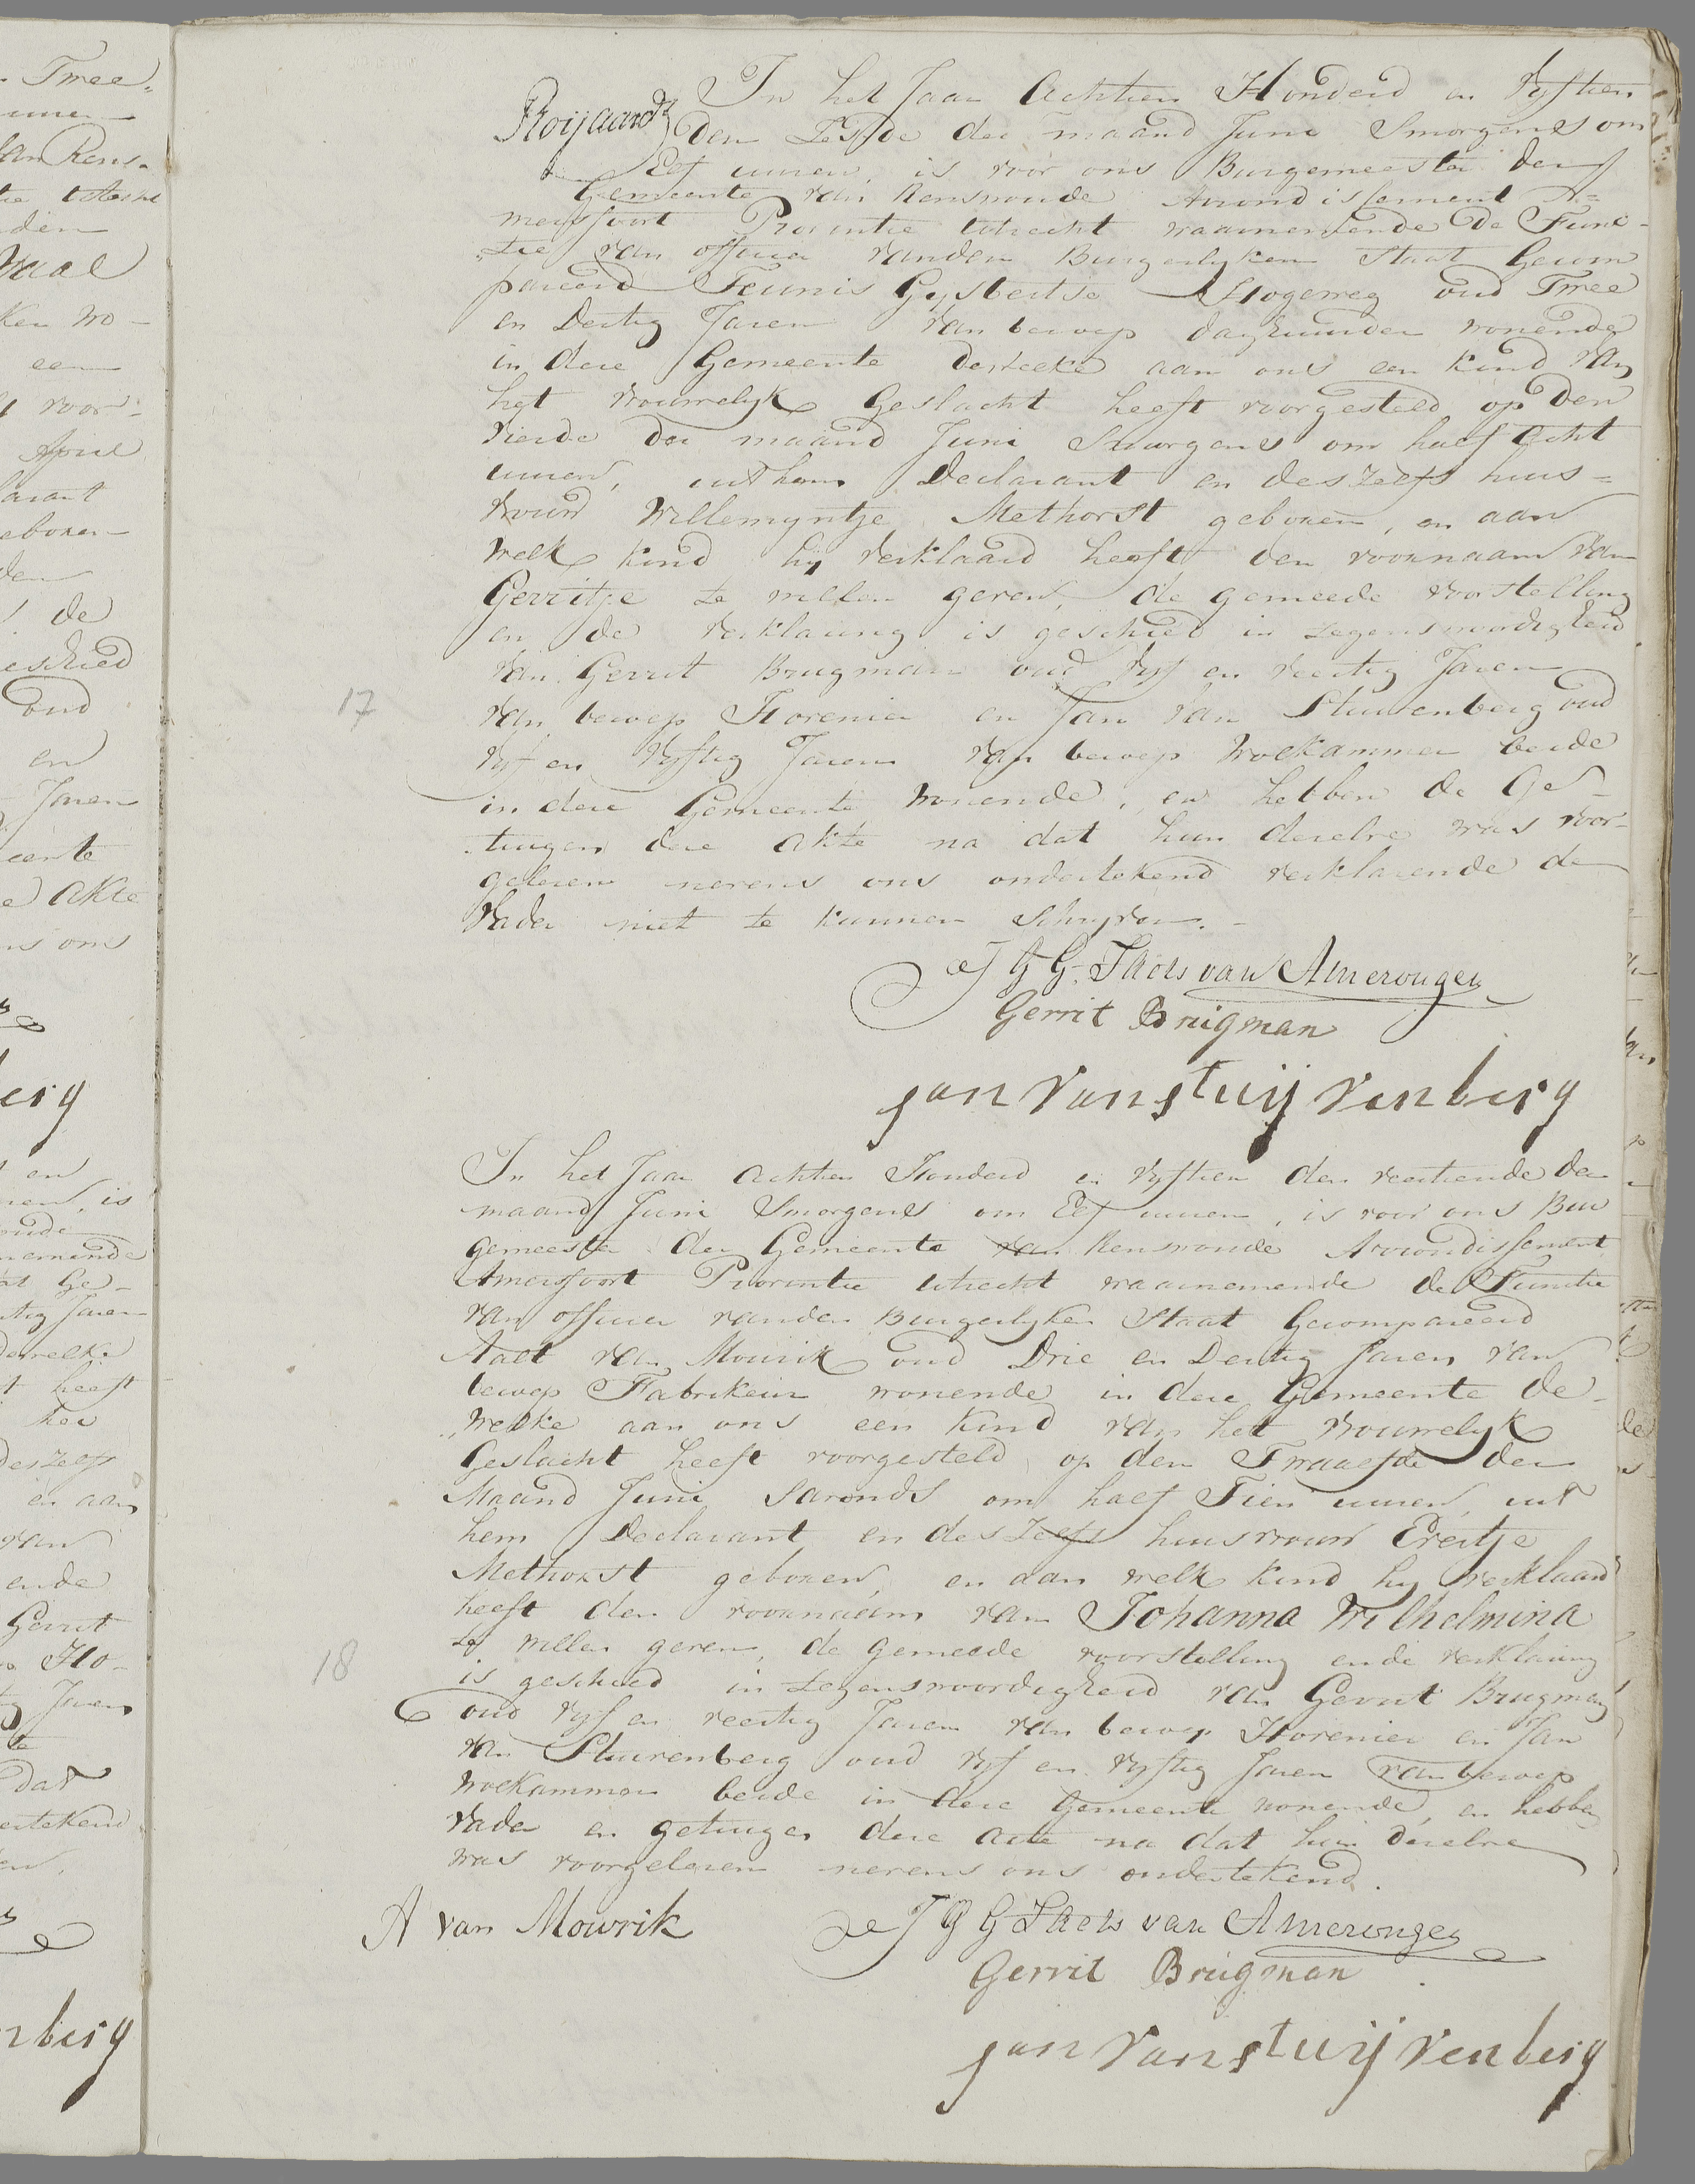 Roijaards
In het Jaar Achtien Honderd en Vyftien
den Zesde der maand Juni Smorgens om
Elf uuren, is voor ons Burgemeester der
Gemeente van Renswoude Arrondissement A=
mersfoort Provintie Utrecht waarnemende de Func-
tie van officier vanden Burgerlyken Staat Gecom
pareerd Teunis Gysbertse Hogeweg oud Twee
en Dertig Jaren van beroep daghuurder wonende
in dese Gemeente dewelke aan ons een kind van
het Vrouwelyk Geslacht heeft voorgesteld op den
Vierde der maand Juni Smorgens om half Acht
uuren, uit hem Declarant en deszelfs huis=
vrouw Willemyntje Methorst geboren, en aan
welk kind hy verklaard heeft den voornaam van
Gerritje te willen geven, de gemeede voorstelling
en de verklaring is geschied in tegenswoordigheid
van Gerrit Brugman oud Vyf en veertig Jaren
van beroep Hovenier en Jan van Stuivenberg oud
Vyf en Vyftig Jaren van beroep Wolkammer beide
in dese Gemeente Wonende, en hebben de Ge-
tuigen dese akte na dat hun deselve was voor-
gelesen nevens ons ondertekend verklarende de
Vader niet te kunnen Schryven.-
17
J G G Taets van Amerongen
Gerrit Brugman
jan van stuijvenberg
In het Jaar Achtien Honderd en Vyftien den veertiende der
maand Juni Smorgens om Elf uuren, is voor ons Bur
gemeester der Gemeente van Renswoude Arrondissement
Amersfoort Provintie Utrecht waarnemende de Functie
van officier vanden Burgerlyken Staat Gecompareerd
Aalt van Mourik oud Drie en Dertig Jaren van
beroep Fabrikeur wonende in dese Gemeente de-
welke aan ons een kind van het Vrouwelyk
Geslacht heeft voorgesteld op den Twaalfde der
Maand Juni Savonds om half Tien uuren uit
hem Declarant en deszelfs huisvrouw Evertje
Methorst geboren, en aan welk kind hy verklaard
heeft den voornaam van Johanna Wilhelmina
te willen geven, de gemeede voorstelling ende verklaring
is geschied in tegenswoordigheid van Gerrit Brugman
oud Vyf en veertig Jaren van beroep Hovenier en Jan
van Stuivenberg oud Vyf en Vyftig Jaren van beroep
Wolkammer beide in dese Gemeente wonende, en hebben
Vader en getuigen dese acte na dat hun deselve
was voorgelesen nevens ons ondertekend.
18
A van Mourik
J G G Taets van Amerongen
Gerrit Brugman
jan van stuijvenberg